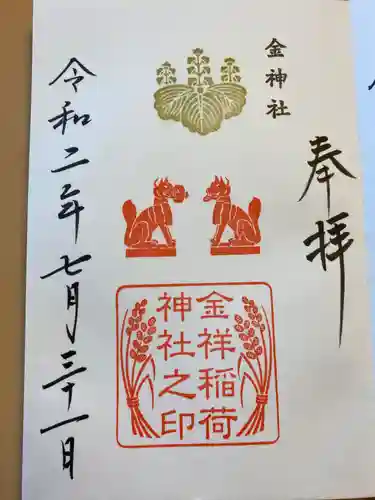 奉拝
金神社
金祥稲荷
神社之印
令和二年七月三十一日